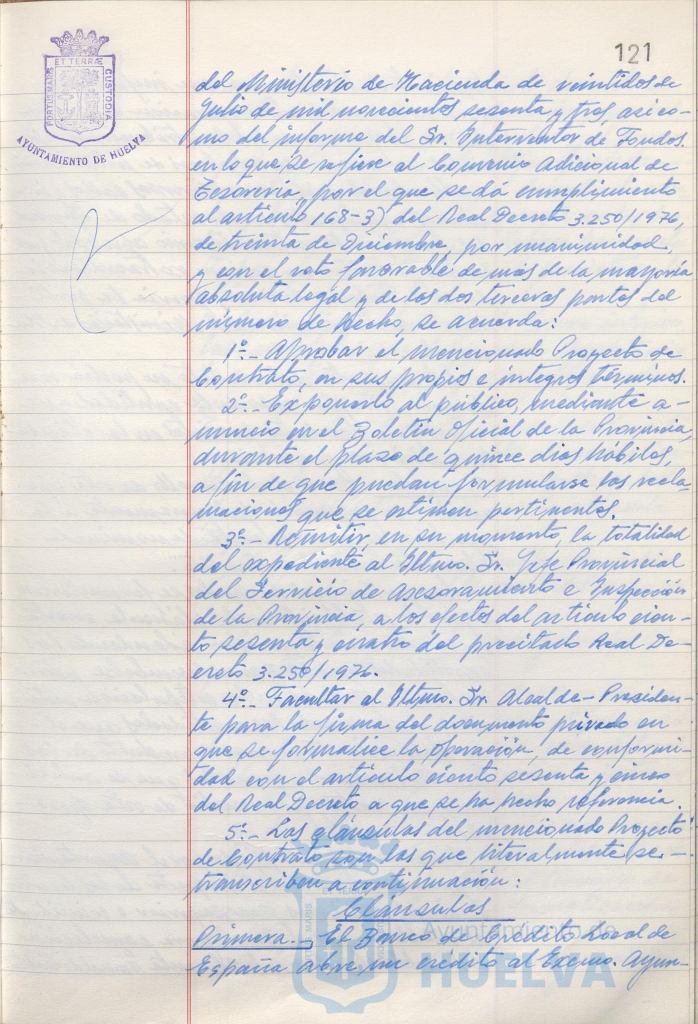 121
ET TERRÆ
PORTUS MARIS
CUSTODIA
AYUNTAMIENTO DE HUELVA
del Ministerio de Hacienda de veintidos de
julio de mil novecientos sesenta y tres, asi co-
mo del informe del Sr. Interventor de Fondos.
en lo que se refiere al Convenio Adicional de
Tesorería, por el que se dá cumplimiento
al artículo 168-3) del Real Decreto 3.250/1976,
de treinta de Diciembre, por unanimidad,
y con el voto favorable de más de la mayoría
absoluta legal y de las dos terceras partes del
número de hecho, se acuerda:
1º.- Aprobar el mencionado Proyecto de
Contrato, en sus propios e íntegros términos.
2º.- Exponerlo al público, mediante a-
nuncio en el Boletín Oficial de la Provincia,
durante el plazo de quince dias hábiles,
a fin de que puedan formularse las recla-
maciones que se estimen pertinentes.
3º.- Remitir, en su momento, la totalidad
del expediente al Iltmo. Sr. Jefe Provincial
del Servicio de Asesoramiento e Inspección
de la Provincia, a los efectos del artículo cien-
to sesenta y cuatro del precitado Real De-
creto 3.250/1976.
4º.- Facultar al Iltmo. Sr. Alcalde-Presiden-
te para la firma del documento privado en
que se formalice la operación, de conformi-
dad con el artículo ciento sesenta y cinco
del Real Decreto a que se ha hecho referencia.
5º.- Las cláusulas del mencionado Proyecto
de Contrato son las que literalmente se
transcriben a continuación:
Cláusulas
Primera.- El Banco de Crédito Local de
España abre un crédito al Excmo. Ayun-
Ayuntamiento de
HUELVA